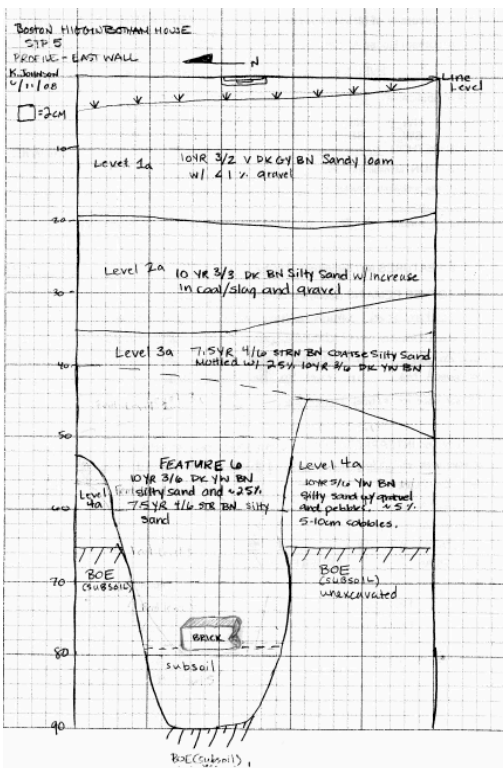 BOSTON HIGGINBOTHAM HOUSE
STP. 5
PROFILE - EAST WALL
K. JOHNSON
4/11/08
=2CM
N
Line
Level
10
Level 1a
10YR 3/2 V DK GY BN Sandy loam
w/ <1% gravel
20
Level 2a
10 YR 3/3 DK BN Silty Sand w/ increase
in coal/slag and gravel
30
Level 3a
7.5YR 4/6 STRN BN COATSE Silty Sand
Mottled w/ 25% 10YR 3/6 DK YW BN
40
50
FEATURE 6
10YR 3/6 DK YW BN
silty sand and ~25%
7.5 YR 4/6 STR BN silty
sand
Level
4a
Level 4a
10YR 5/6 YW BN
silty sand w/ gravel
and pebbles. ~5%
5-10cm cobbles.
60
BOE
(SUBSOIL)
BOE
(SUBSOIL)
unexcavated
70
BRICK
80
subsoil
90
BOE (subsoil)